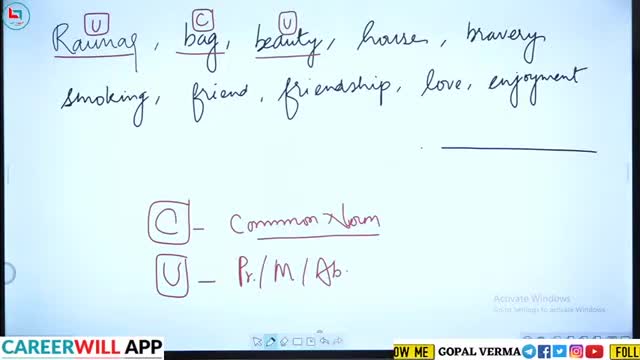 U C U
Raunaq, bag, beauty, house, bravery
smoking, friend, friendship, love, enjoyment
C - Common Noun
U - Pr./M/Ab.
Activate Windows
Go to Settings to activate Windows.
CAREERWILL APP
LOW ME GOPAL VERMA FOLL